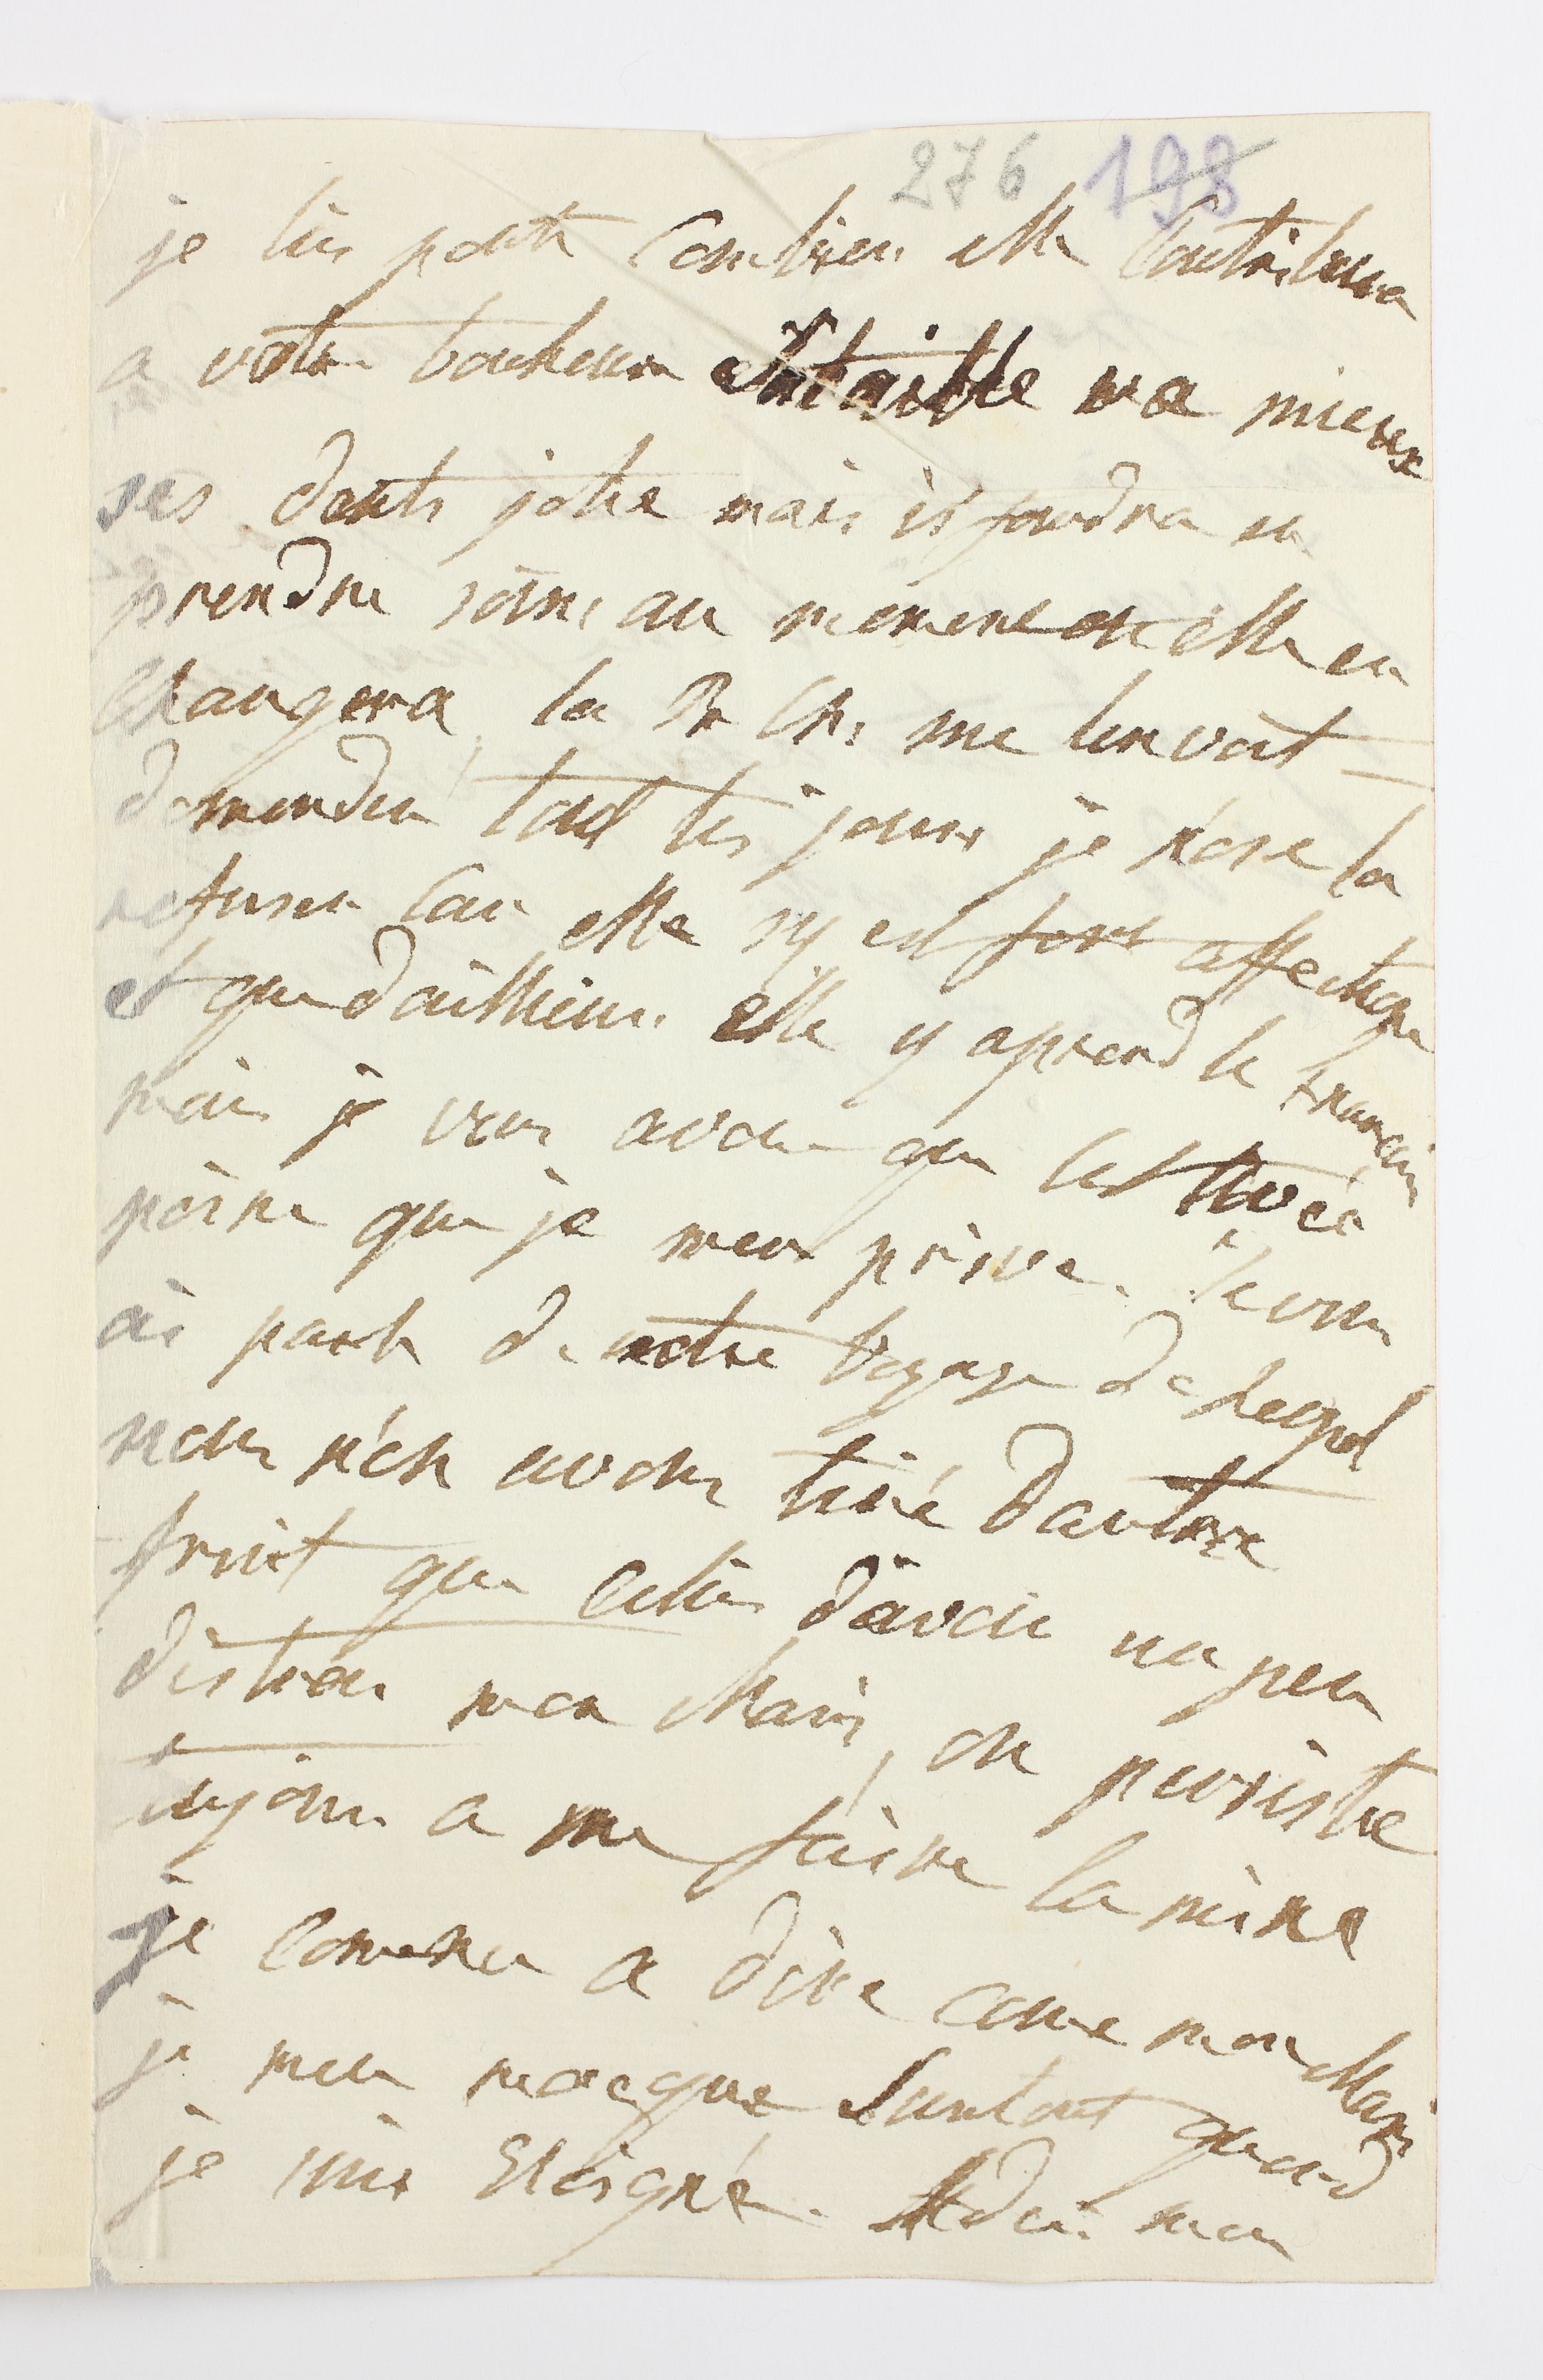 276 198
je lui porte combien elle contribura
a votre bonheur Sa taille va mieux
ses dents jolie mais il foudra en
prendre soins au moment ou elle en
changera, la Pr Ch: me l'envoit
demander tout les jours je n'ose la
refuser car elle s'y est fort affectione
et que dailleiur elle y aprend le francais
mais je vous avoue que cest avec
peine que je men prive. Je vous
ai parlé de notre voyage de
nous n'en avons tiré dautre
fruit que celui davoir un peu
distrai mon Mari, on persiste
toujour a me faire la mine
je comence a dire come mon Mari
je men mocque surtout quand
je suis Eloigné. Adieu mon